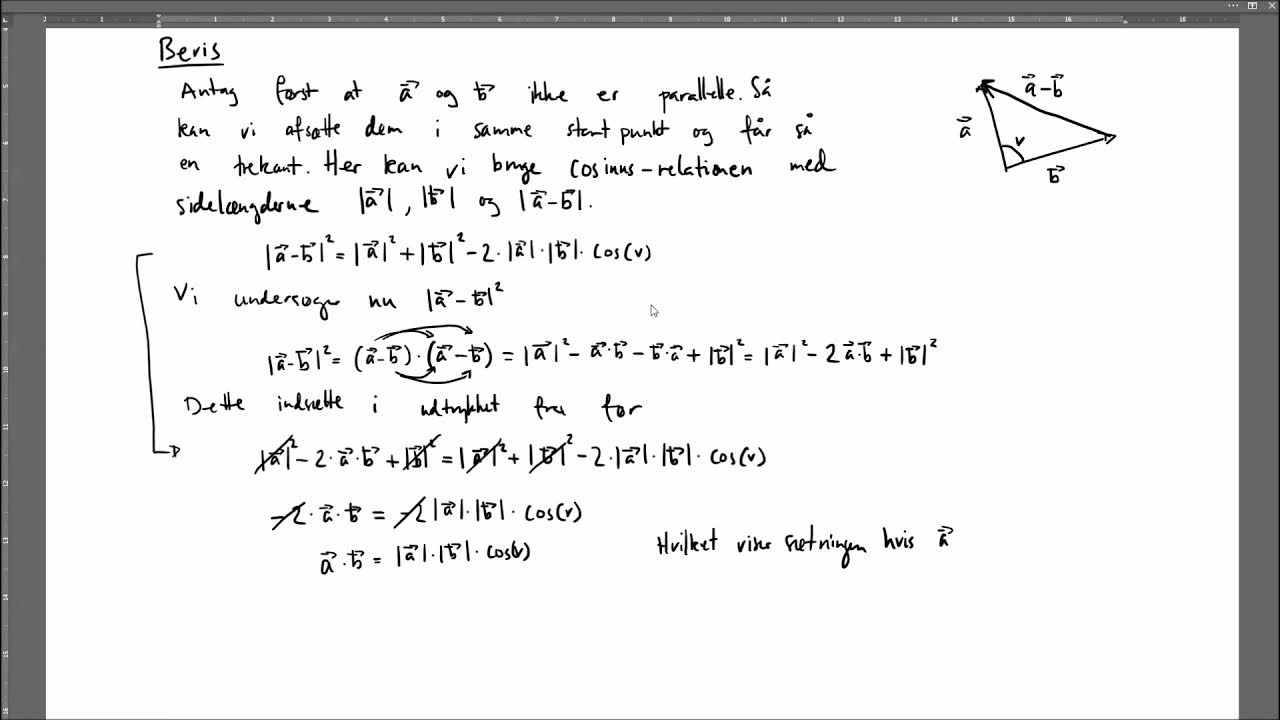 Bevis
Antag først at a⃗ og b⃗ ikke er parallelle. Så
kan vi afsætte dem i samme startpunkt og får så
en trekant. Her kan vi bruge cosinus-relationen med
sidelængderne |a⃗|, |b⃗| og |a⃗-b⃗|.
a⃗-b⃗
a⃗
v
b⃗
|a⃗-b⃗|² = |a⃗|² + |b⃗|² - 2·|a⃗|·|b⃗|·cos(v)
Vi undersøger nu |a⃗-b⃗|²
|a⃗-b⃗|² = (a⃗-b⃗)·(a⃗-b⃗) = |a⃗|² - a⃗·b⃗ - b⃗·a⃗ + |b⃗|² = |a⃗|² - 2a⃗·b⃗ + |b⃗|²
Dette indsætte i udtrykket fra før
|a⃗|² - 2·a⃗·b⃗ + |b⃗|² = |a⃗|² + |b⃗|² - 2·|a⃗|·|b⃗|·cos(v)
-2·a⃗·b⃗ = -2|a⃗|·|b⃗|·cos(v)
a⃗·b⃗ = |a⃗|·|b⃗|·cos(v)
Hvilket viser sætningen hvis a⃗